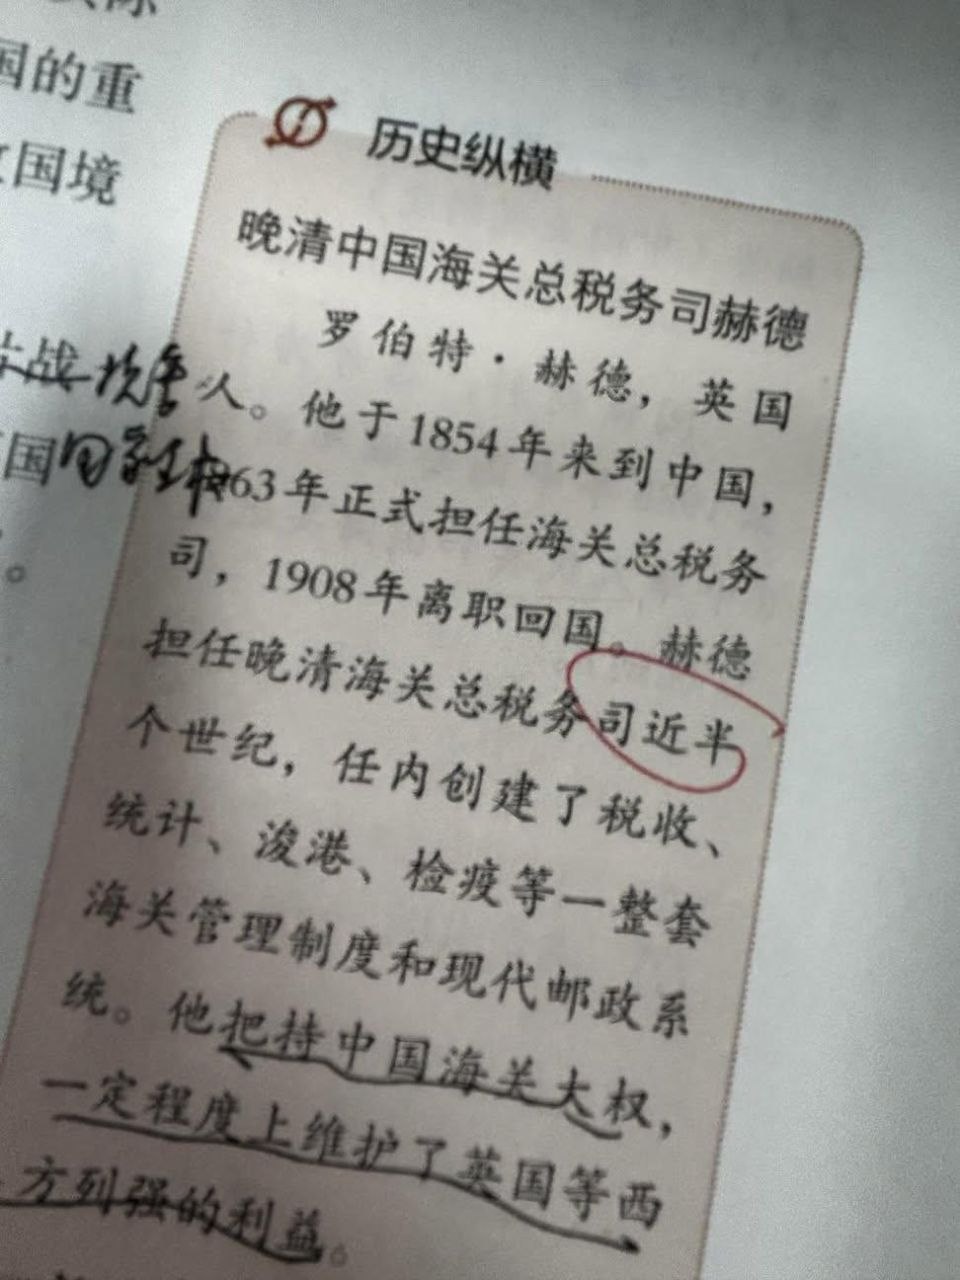 国的重
国境
历史纵横
晚清中国海关总税务司赫德
罗伯特·赫德，英国
人。他于1854年来到中国，
63年正式担任海关总税务
司，1908年离职回国。赫德
担任晚清海关总税务司近半
个世纪，任内创建了税收、
统计、浚港、检疫等一整套
海关管理制度和现代邮政系
统。他把持中国海关大权，
一定程度上维护了英国等西
方列强的利益。
战
国